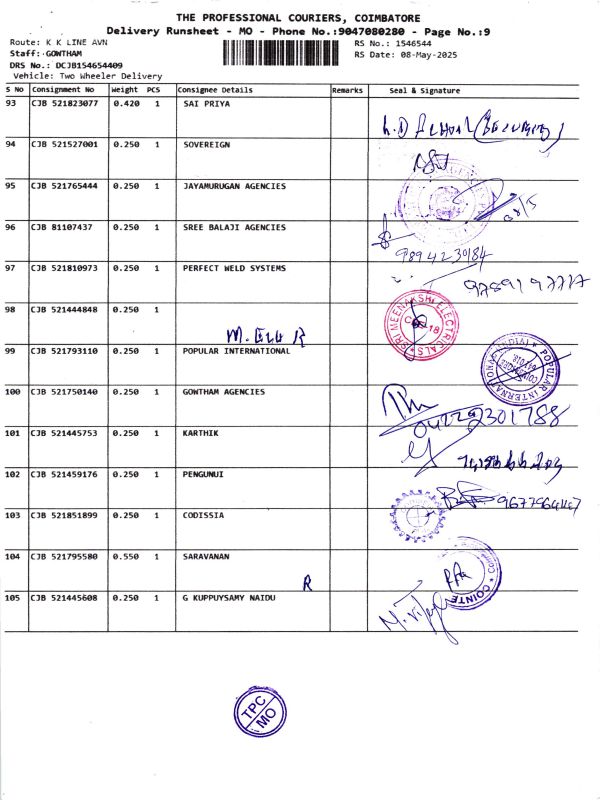 THE PROFESSIONAL COURIERS, COIMBATORE
Delivery Runsheet - MO - Phone No.:9047080280 - Page No.:9
Route: K K LINE AVN
RS No.: 1546544
Staff: GOWTHAM
RS Date: 08-May-2025
DRS No.: DCJB154654409
Vehicle: Two Wheeler Delivery
S No Consignment No Weight PCS Consignee Details Remarks Seal & Signature
93 CJB 521823077 0.420 1 SAI PRIYA
94 CJB 521527001 0.250 1 SOVEREIGN
95 CJB 521765444 0.250 1 JAYAMURUGAN AGENCIES
96 CJB 81107437 0.250 1 SREE BALAJI AGENCIES
9894230184
97 CJB 521810973 0.250 1 PERFECT WELD SYSTEMS
98 CJB 521444848 0.250 1
SRI MEENAKSHI ELECTRICALS
99 CJB 521793110 0.250 1 POPULAR INTERNATIONAL
POPULAR INTERNATIONAL (INDIA)
COIMBATORE
641 018.
100 CJB 521750140 0.250 1 GOWTHAM AGENCIES
04222301788
101 CJB 521445753 0.250 1 KARTHIK
102 CJB 521459176 0.250 1 PENGUNUI
103 CJB 521851899 0.250 1 CODISSIA
104 CJB 521795580 0.550 1 SARAVANAN
R
105 CJB 521445608 0.250 1 G KUPPUYSAMY NAIDU
TPC
MO